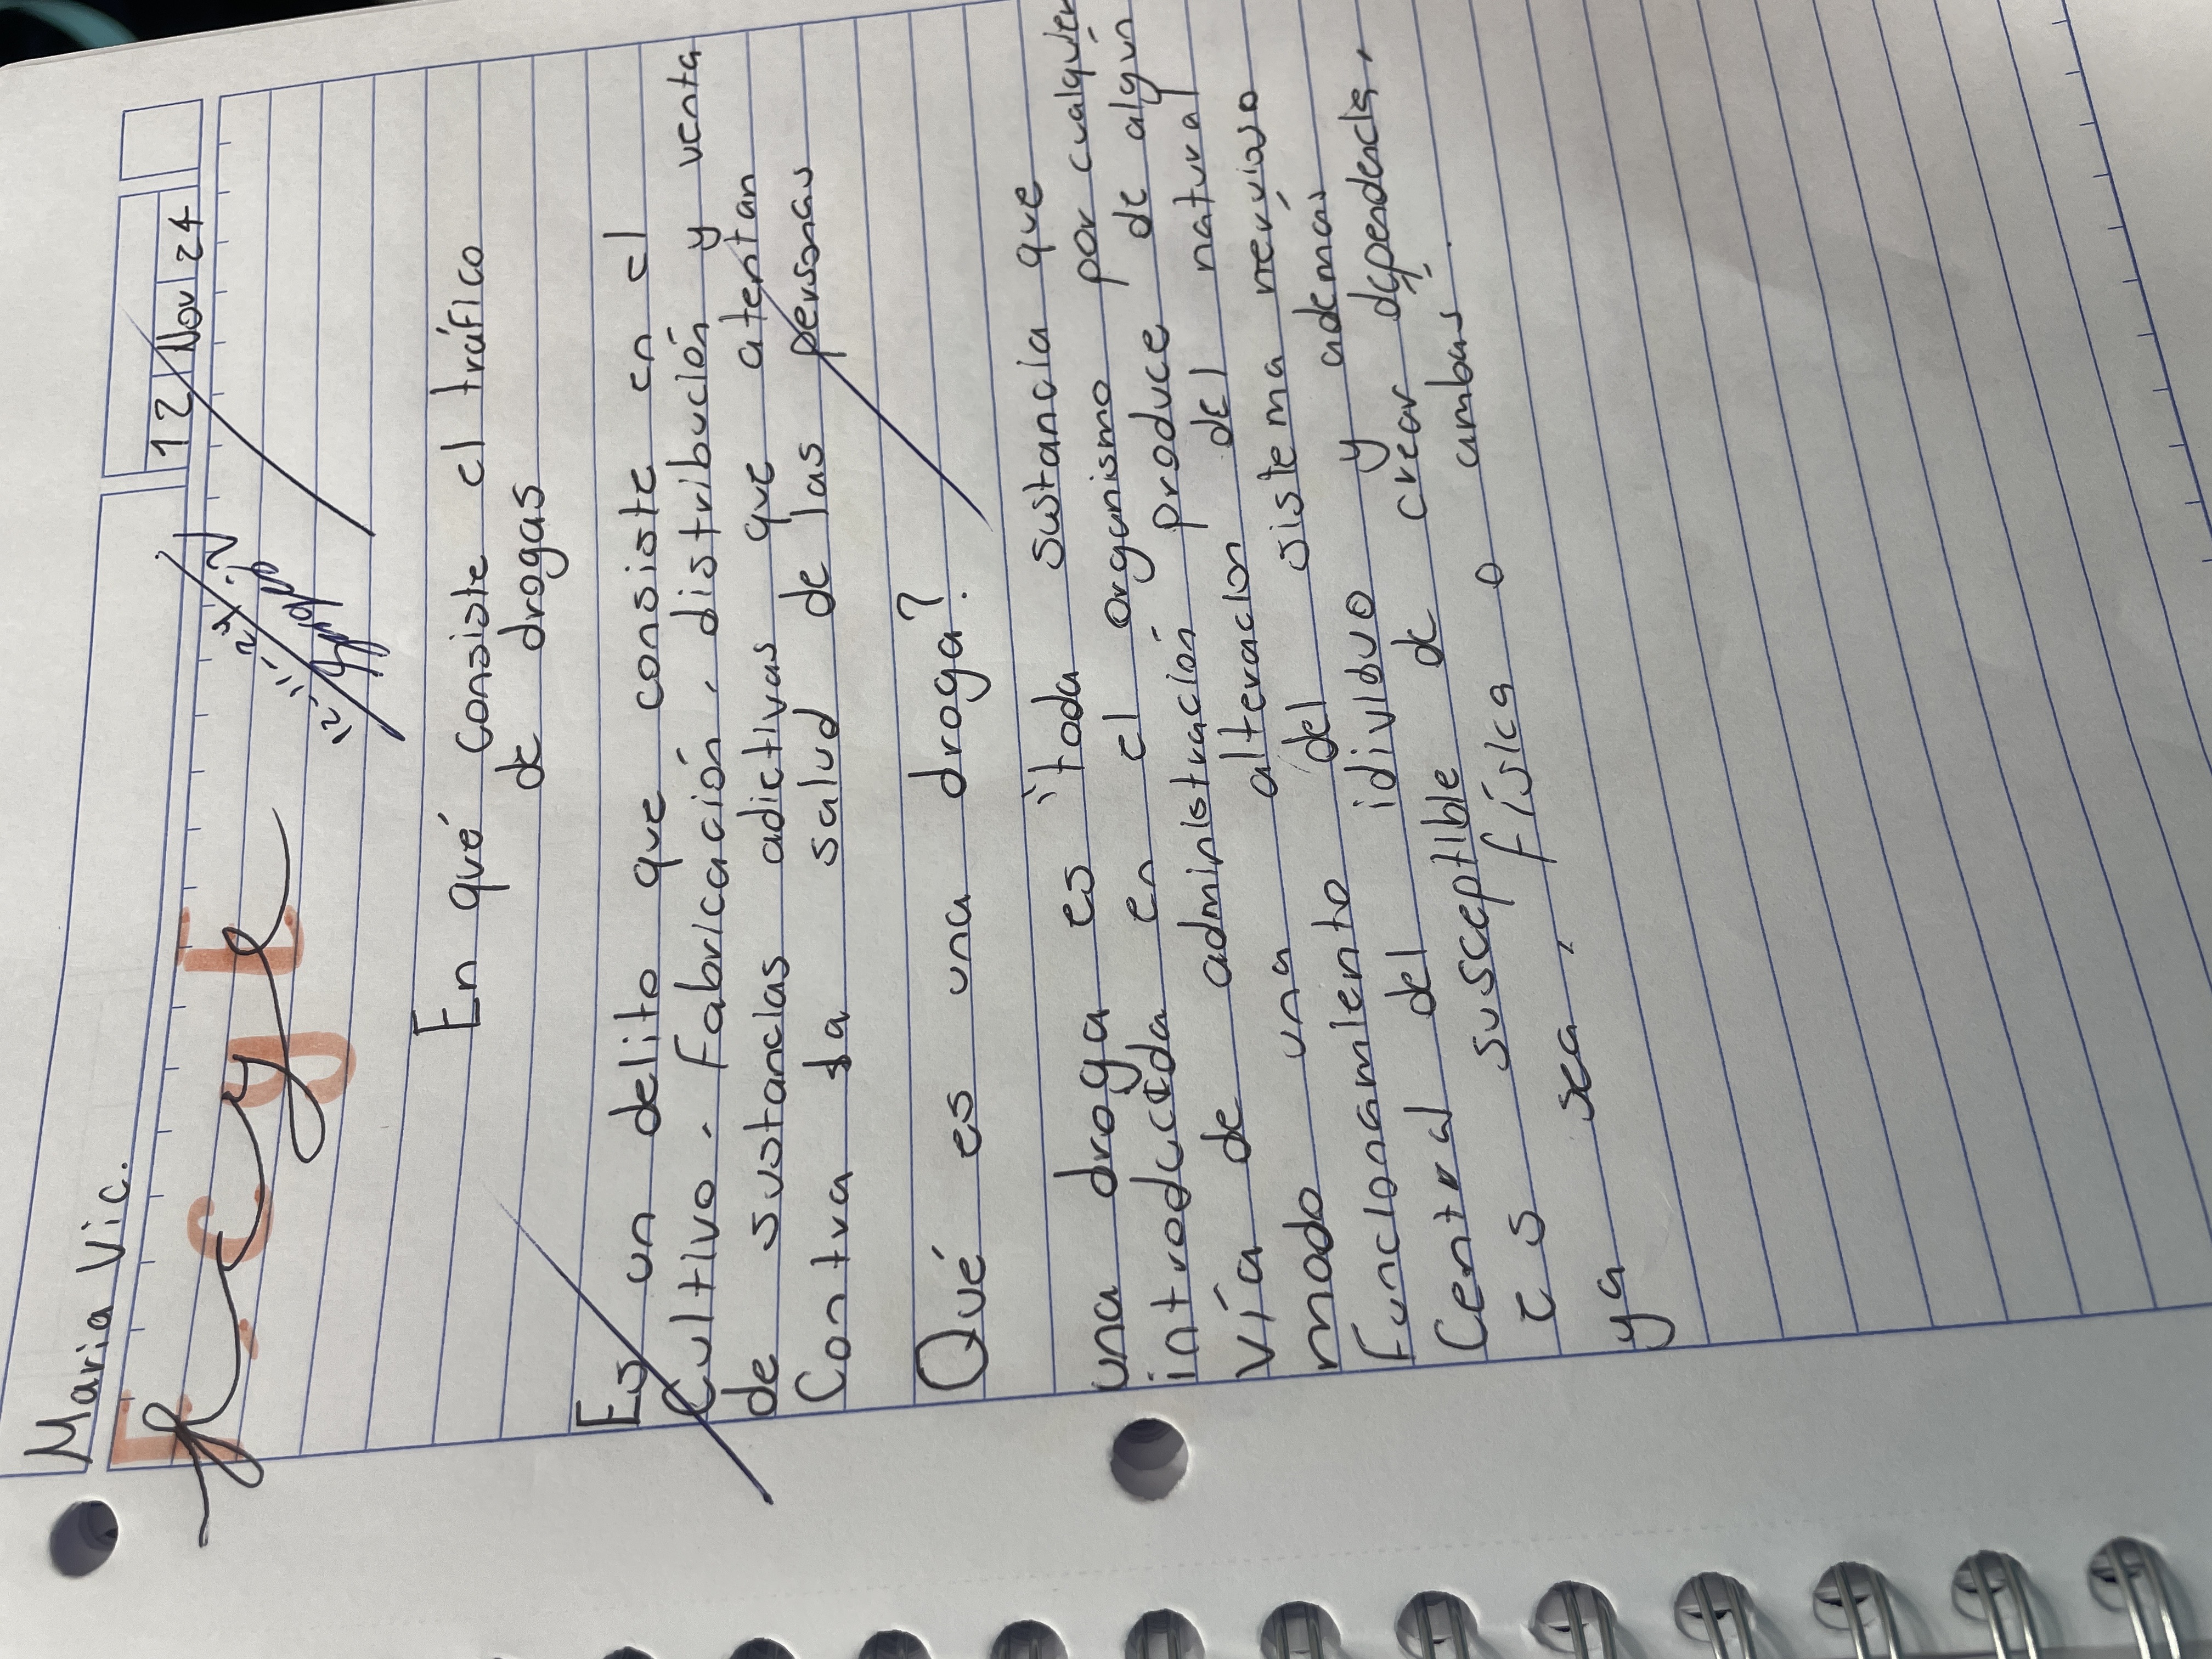 Maria Vic.
12 Nov 24
F. C y E
En qué Consiste el tráfico
de drogas
Es un delito que consiste en el
Cultivo, Fabricación, distribución y venta
de sustancias adictivas que atentan
Contra la salud de las personas
Qué es una droga?
una droga es "toda sustancia que
introducida en el organismo por cualquier
Vía de administración produce de algún
modo una alteracion del natural
Funcionamiento del sistema nervioso
Central del idividuo y además
es susceptible de crear dependencia,
ya sea, física o ambas.